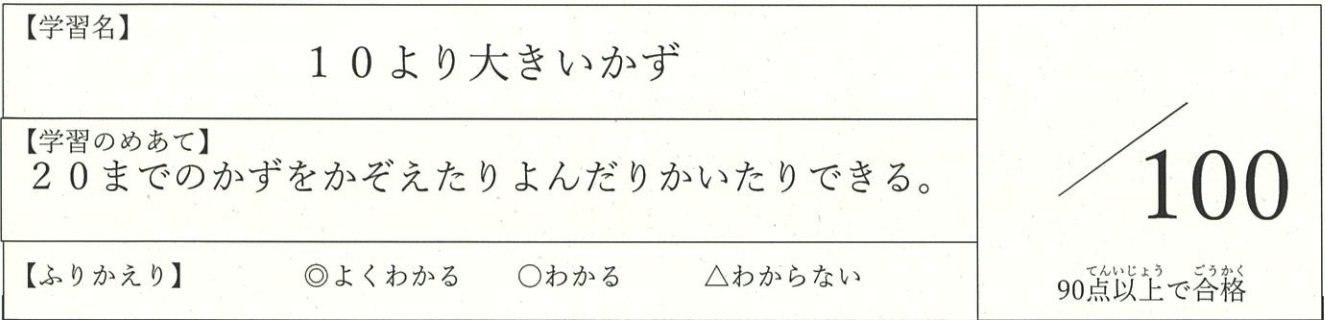 【学習名】
１０より大きいかず
【学習のめあて】
２０までのかずをかぞえたりよんだりかいたりできる。
【ふりかえり】 ◎よくわかる ○わかる △わからない
／100
てんいじょう ごうかく
90点以上で合格